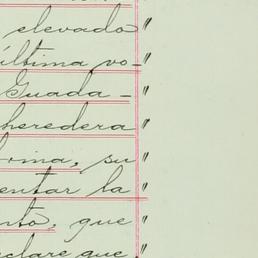 elevado "
última vo- "
Guada- "
heredera "
su "
entar la "
nto, que "
clare que "